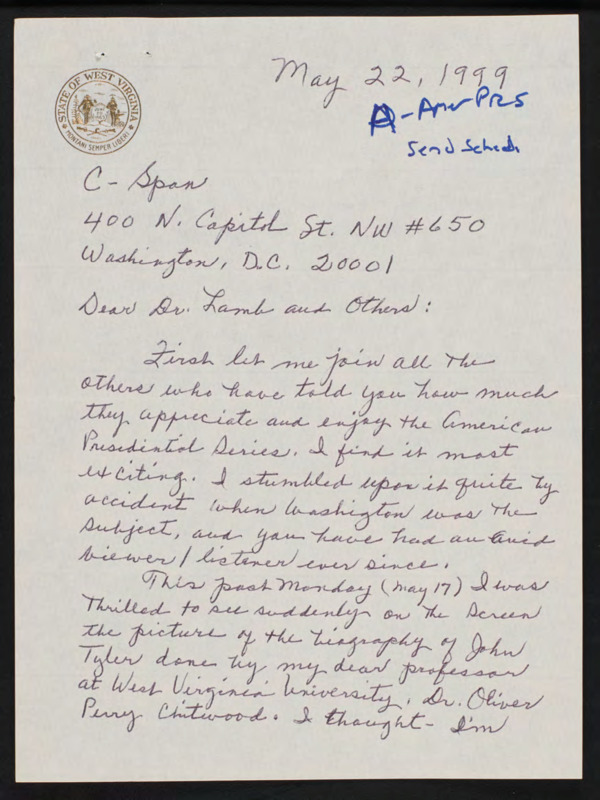 May 22, 1999
A-Amer PRS
Send Sched
STATE OF WEST VIRGINIA
MONTANI SEMPER LIBERI
C-Span
400 N. Capitol St. NW #650
Washington, D.C. 20001
Dear Dr. Lamb and Others:
First let me join all the
others who have told you how much
they appreciate and enjoy the American
Presidential Series. I find it most
exciting. I stumbled upon it quite by
accident when Washington was the
subject, and you have had an avid
viewer/listener ever since.
This past Monday (May 17) I was
thrilled to see suddenly on the screen
the picture of the biography of John
Tyler done by my dear professor
at West Virginia University, Dr. Oliver
Perry Chitwood. I thought - I'm